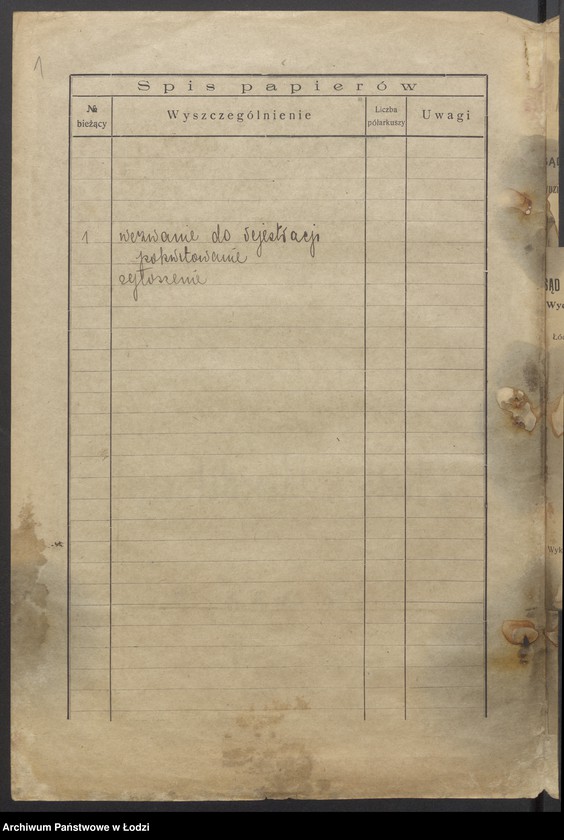 1
Spis papierów
№ bieżący
Wyszczególnienie
Liczba półarkuszy
Uwagi
1 wezwanie do rejestracji
pokwitowanie
ogłoszenie
SĄD
Wyd
Łó
Wyk
Archiwum Państwowe w Łodzi